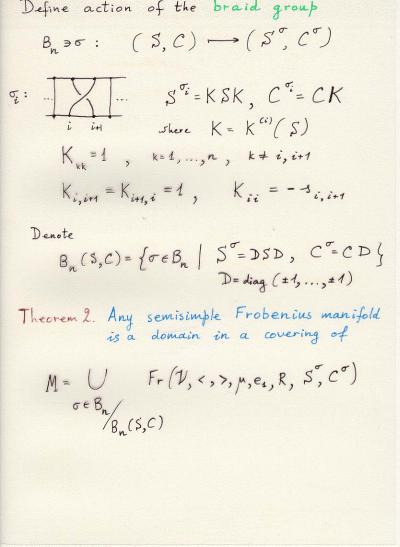 Define action of the braid group
Bₙ ∋ σ : (S, C) ⟼ (S^σ, C^σ)
σᵢ: ... ... S^{σᵢ} = KSK, C^{σᵢ} = CK
i i+1 where K = K^{(i)}(S)
K_{kk} = 1 , k = 1, ..., n, k ≠ i, i+1
K_{i,i+1} = K_{i+1,i} = 1 , K_{ii} = -s_{i,i+1}
Denote
Bₙ(S,C) = {σ ∈ Bₙ | S^σ = DSD, C^σ = CD}
D = diag (±1, ..., ±1)
Theorem 2. Any semisimple Frobenius manifold
is a domain in a covering of
M = ∪ Fr(V, <, >, μ, e₁, R, S^σ, C^σ)
σ ∈ Bₙ/Bₙ(S,C)